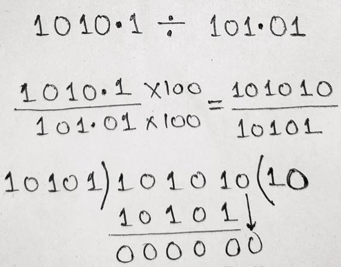 1010.1 ÷ 101.01
1010.1 ×100 = 101010
101.01 ×100 10101
10101)101010(10
10101↓
000000